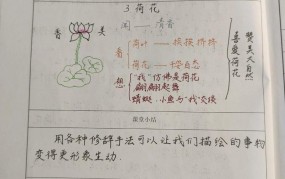 3 荷花
香 美
闻——清香
看
荷叶——挨挨挤挤
荷花——千姿百态
想
“我”仿佛是荷花
翩翩起舞
蜻蜓、小鱼与“我”交谈
赞美大自然
喜爱荷花
课堂小结
用各种修辞手法可以让我们描绘的事物
变得更形象生动.